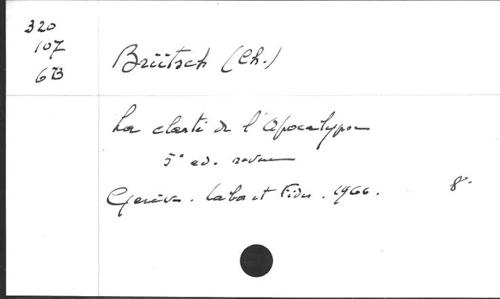 320
107
6B
Brütsch (Ch.)
La clarté de l'Apocalypse
5° ed. revue
Genève. Labor et Fides. 1966. 8°.